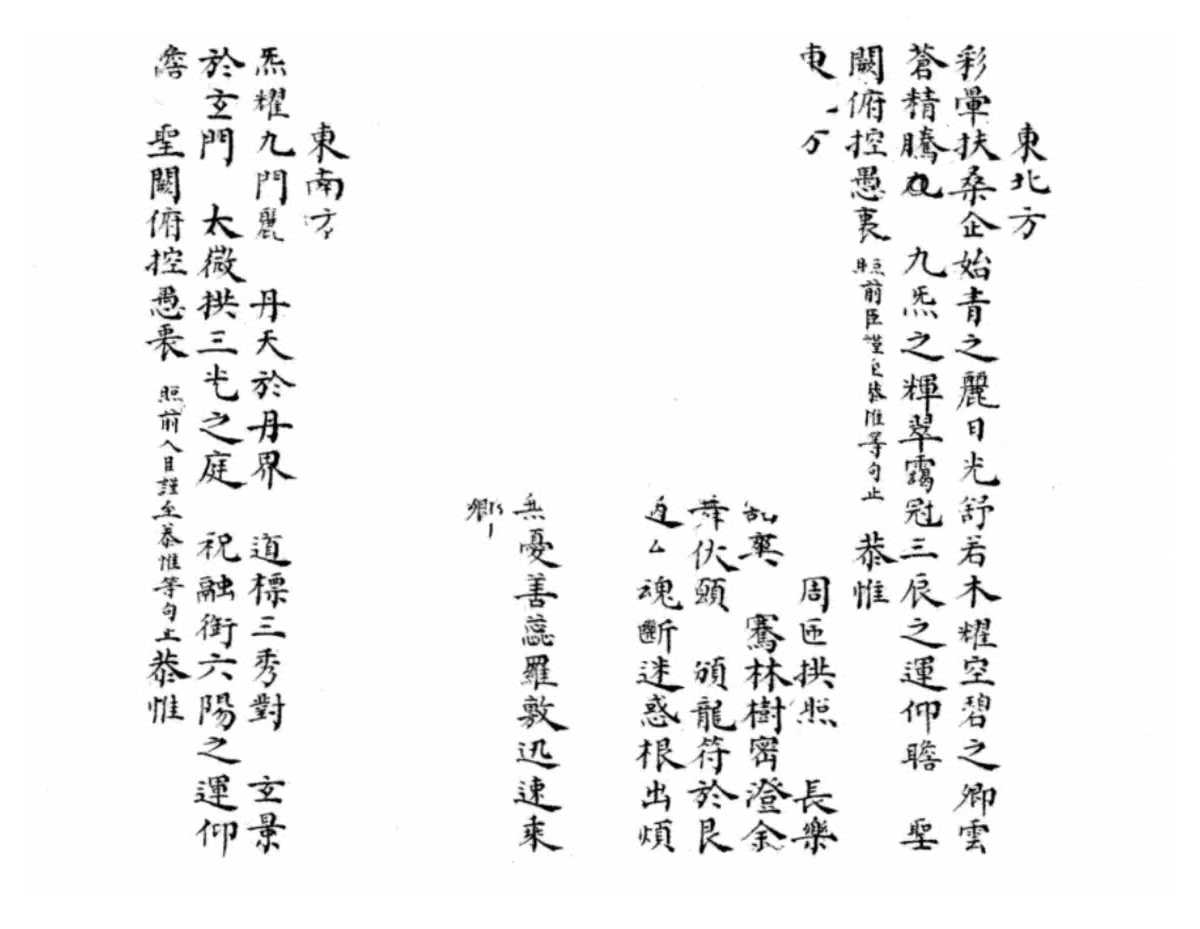 東北方
彩暈扶桑企始青之麗日光舒若木耀空碧之卿雲
蒼精騰 九炁之輝翠靄冠三辰之運仰瞻 聖
闕俯控愚衷 照前臣謹 恭惟等句止 恭惟
東 方 周匝拱照 長樂
騫林樹密澄余
舞伏頭 頒龍符於艮
魂斷迷惑根出煩
無憂善蕊羅敷迅速來
鄉
東南方
炁耀九門麗 丹天於丹界 道標三秀對 玄景
於玄門 太微拱三光之庭 祝融衛六陽之運仰
瞻 聖闕俯控愚衷 照前入目謹至恭惟等句止 恭惟